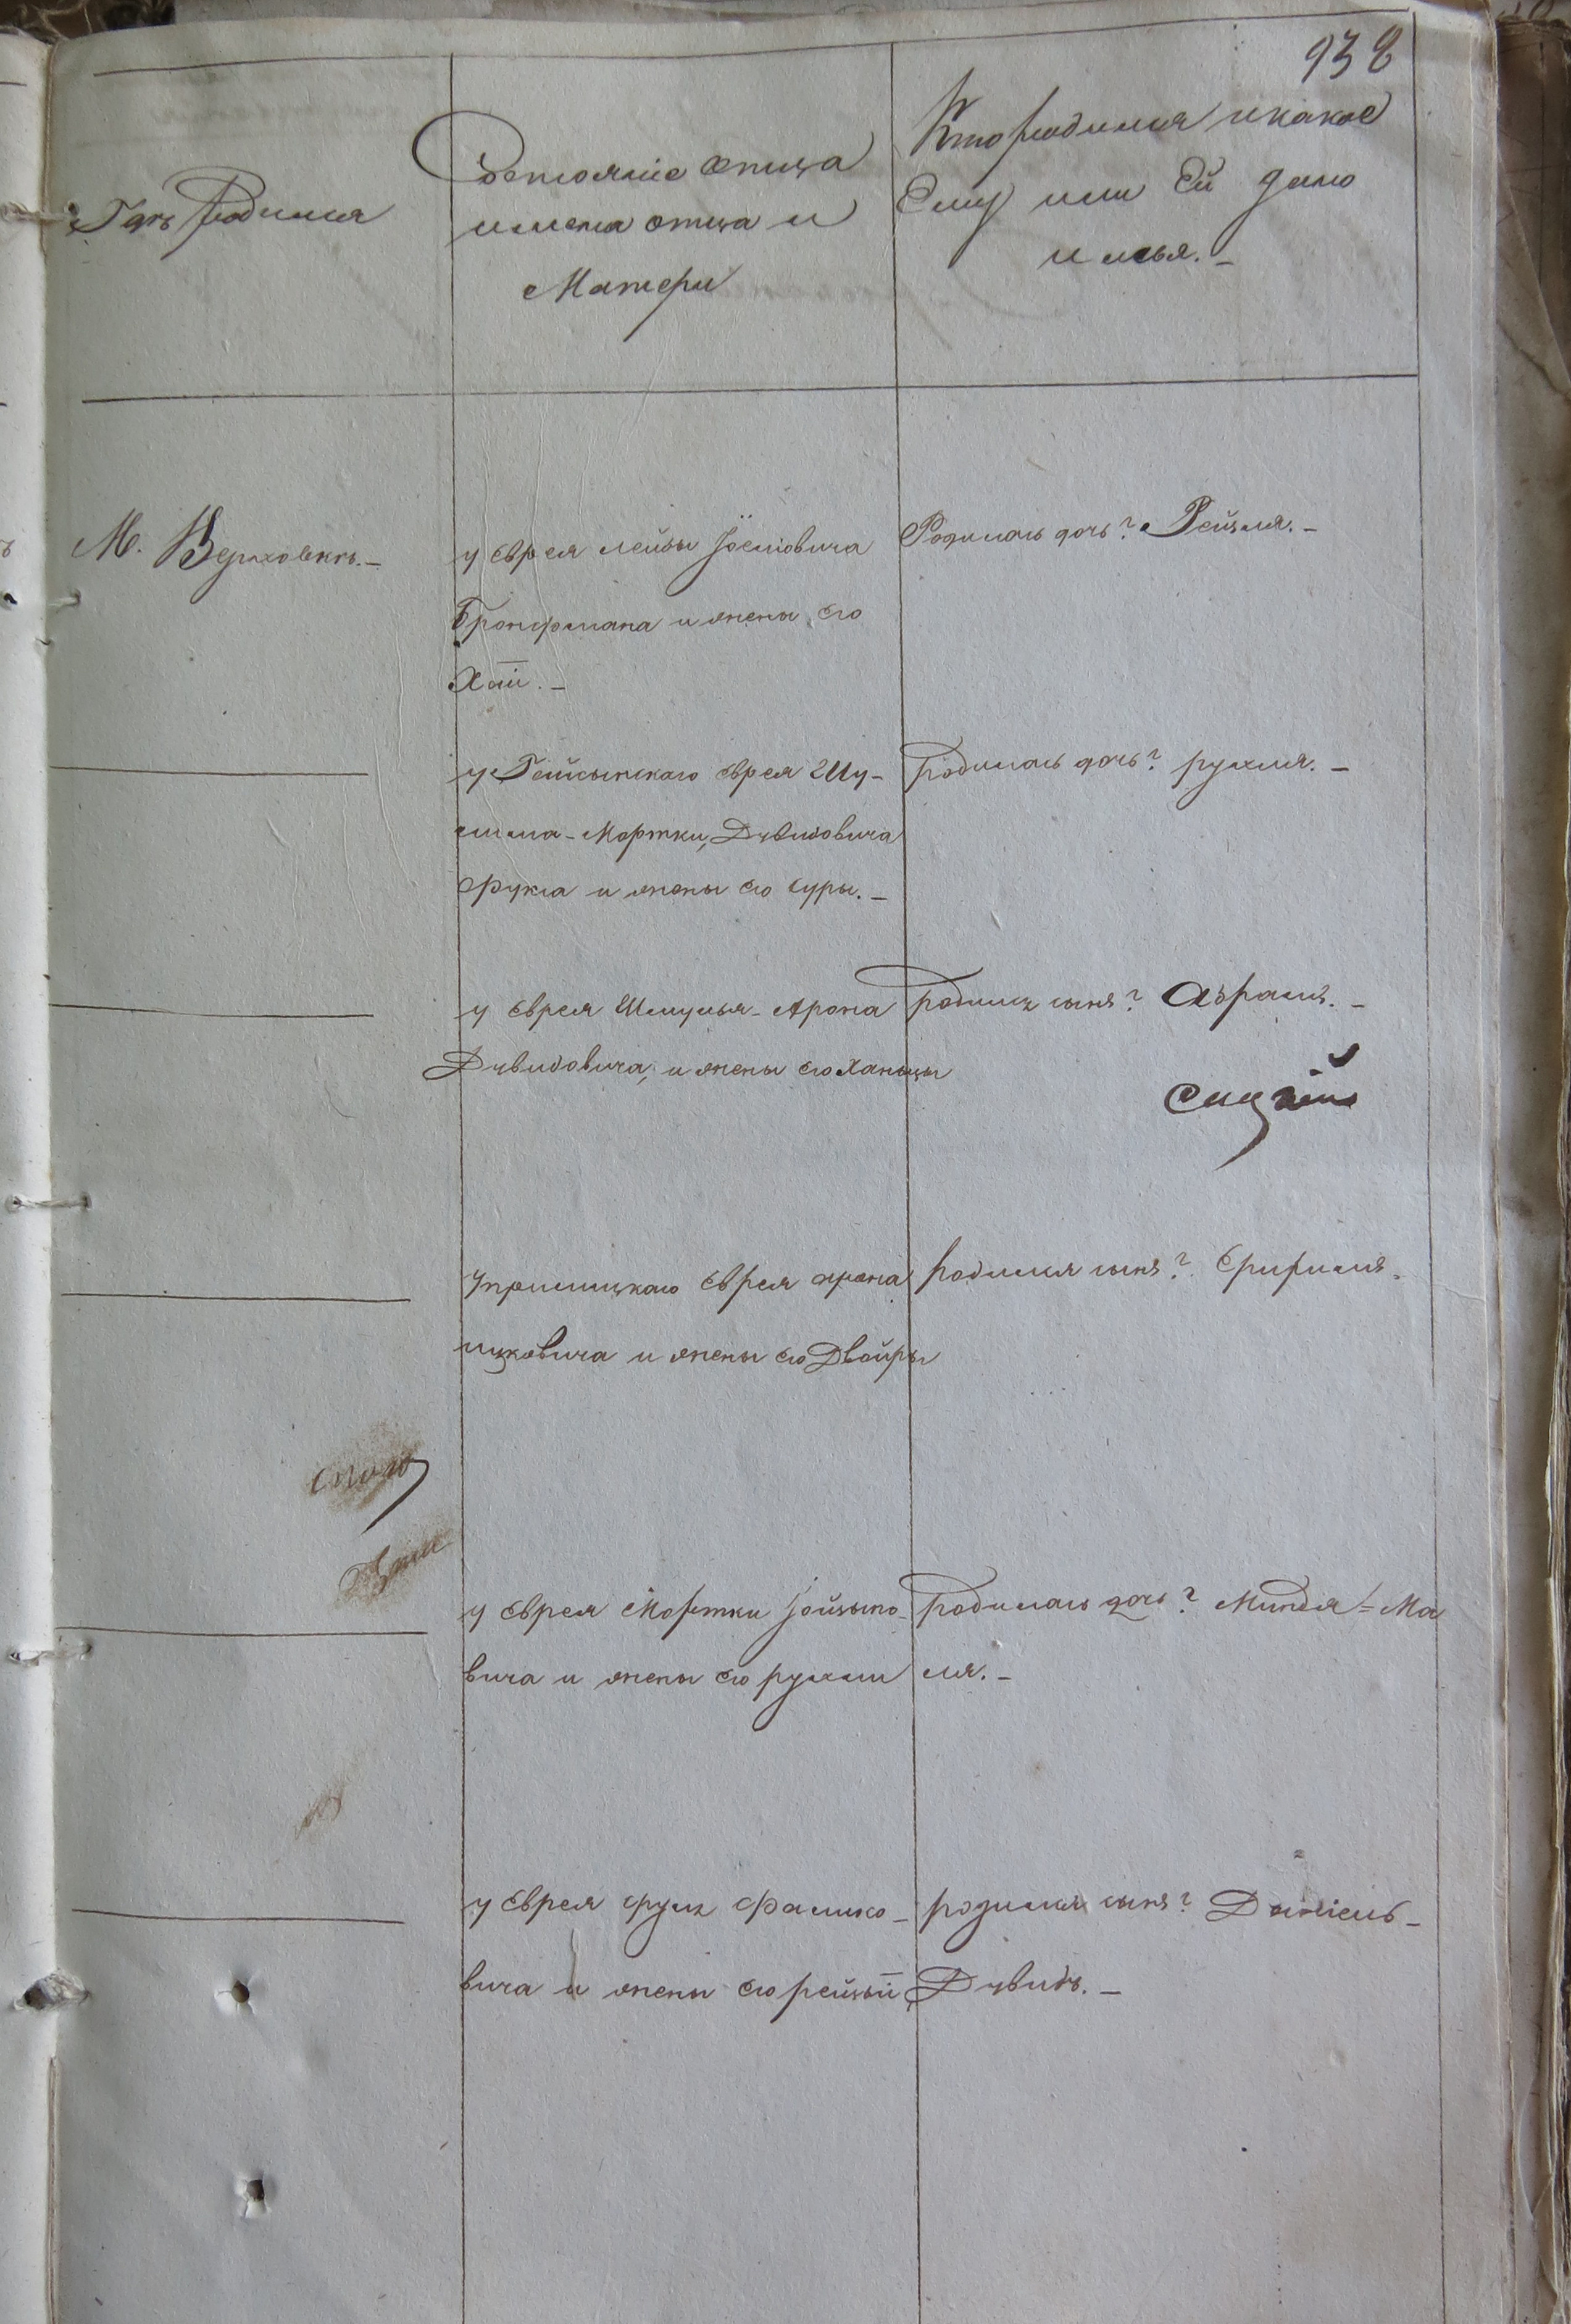 938
Где родился
Состояние отца
имена отца и
Матери
Кто родился и какое
Ему или Ей дано
имья. –
М. Верховкъ. –
у еврея лейбы Йосiовича
Бронфмана и жены его
Хаiи. –
Родилась дочь? Рейзля. –
у Гайсынскаго еврея Шу-
лима - Мортки, Дувидовича
Фукса и жены его суры. –
родилась дочь? рухля. –
у еврея Шмуля - Арона
Дувидовича, и жены его Ханцы
родилъ сынъ? Абрамъ. –
у еврея арона
ицковича и жены его Двойры
родился сынъ?
у еврея Мортки Йойзипо-
вича и жены его рухли
родилась дочь? Миндля = Ма
ля. –
у еврея
вича и жены его рейзыи
родился сынъ? Данiель -
Дувидъ. –